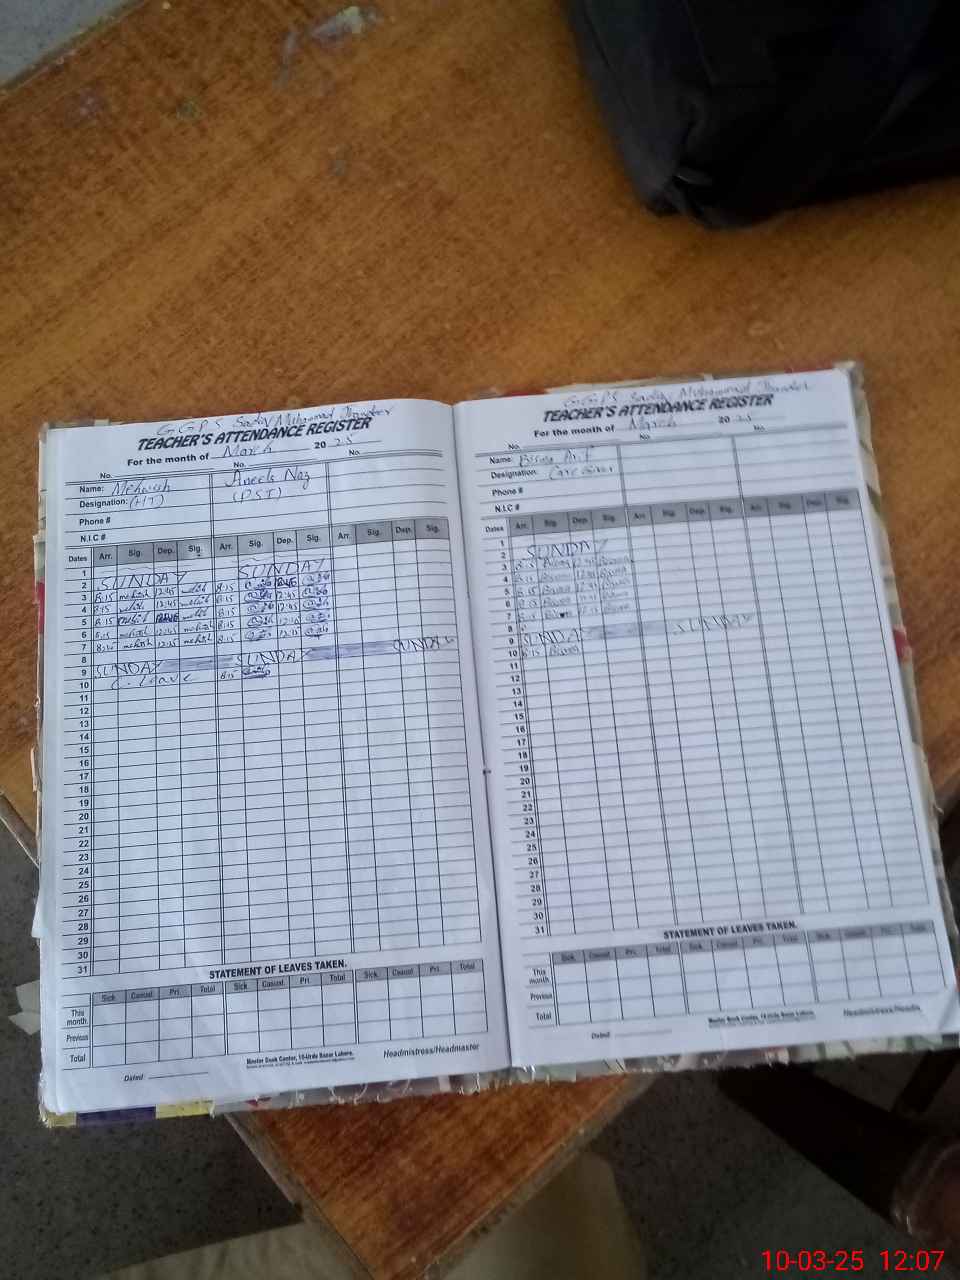 G.G.P.S Sadiq Muhammad Jhandeer
TEACHER'S ATTENDANCE REGISTER
For the month of March 20 25
No. No. No.
Name: Mehwish
Designation: (HT)
Phone #
N.I.C #
Aneela Naz
(PST)
Dates Arr. Sig. Dep. Sig. Arr. Sig. Dep. Sig. Arr. Sig. Dep. Sig.
1
2 SUNDAY SUNDAY
3 8:15 mehwish 12:45 8:15
4 8:15 12:45 8:15 12:45
5 8:15 8:15 12:45
6 8:15 mehwish 12:45 mehwish 8:15
7 8:15
8
9 SUNDAY SUNDAY SUNDAY
10 C. Leave 8:15
11
12
13
14
15
16
17
18
19
20
21
22
23
24
25
26
27
28
29
30
31
STATEMENT OF LEAVES TAKEN.
Sick Casual Pri. Total Sick Casual Pri. Total Sick Casual Pri. Total
This month
Previous
Total
Dated
Master Book Center, 10-Urdu Bazar Lahore.
Headmistress/Headmaster
G.G.P.S Sadiq Muhammad Jhandeer
TEACHER'S ATTENDANCE REGISTER
For the month of March 20 25
No. No. No.
Name: Bisma Arif
Designation: Care Giver
Phone #
N.I.C #
Dates Arr. Sig. Dep. Sig. Arr. Sig. Dep. Sig. Arr. Sig. Dep. Sig.
1
2 SUNDAY
3 8:15 Bisma Bisma
4 8:15 Bisma Bisma
5 8:15 Bisma Bisma
6 8:15 Bisma Bisma
7 8:15 Bisma Bisma
8
9 SUNDAY SUNDAY
10 8:15 Bisma
11
12
13
14
15
16
17
18
19
20
21
22
23
24
25
26
27
28
29
30
31
STATEMENT OF LEAVES TAKEN.
Sick Casual Pri. Total Sick Casual Pri. Total Sick Casual Pri. Total
This month
Previous
Total
Dated
Master Book Center, 10-Urdu Bazar Lahore.
Headmistress/Headma
10-03-25 12:07